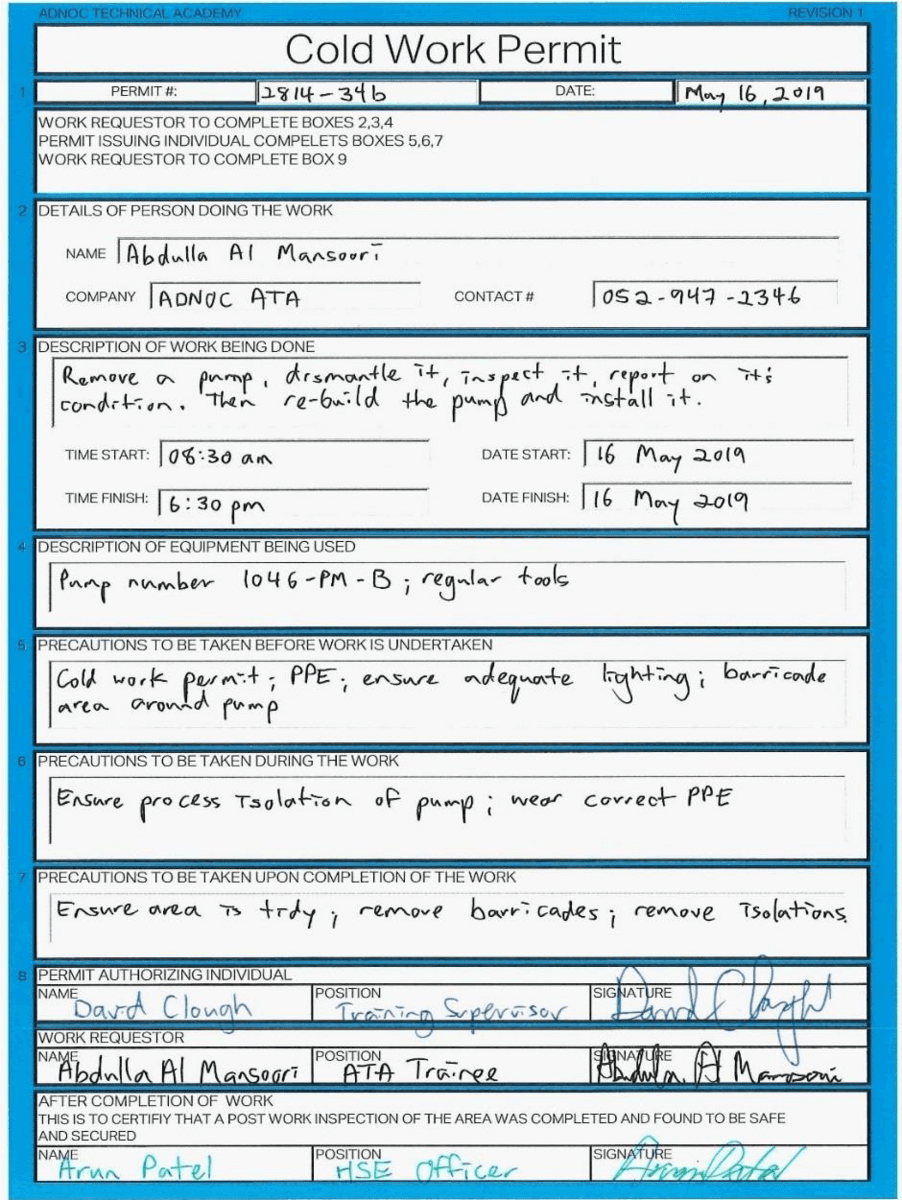 ADNOC TECHNICAL ACADEMY REVISION 1
Cold Work Permit
1 PERMIT #: 2814-346 DATE: May 16, 2019
WORK REQUESTOR TO COMPLETE BOXES 2,3,4
PERMIT ISSUING INDIVIDUAL COMPELETS BOXES 5,6,7
WORK REQUESTOR TO COMPLETE BOX 9
2 DETAILS OF PERSON DOING THE WORK
NAME Abdulla Al Mansoori
COMPANY ADNOC ATA CONTACT # 052-947-2346
3 DESCRIPTION OF WORK BEING DONE
Remove a pump, dismantle it, inspect it, report on it's
condition. Then re-build the pump and install it.
TIME START: 08:30 am DATE START: 16 May 2019
TIME FINISH: 6:30 pm DATE FINISH: 16 May 2019
4 DESCRIPTION OF EQUIPMENT BEING USED
Pump number 1046-PM-B; regular tools
5 PRECAUTIONS TO BE TAKEN BEFORE WORK IS UNDERTAKEN
Cold work permit; PPE; ensure adequate lighting; barricade
area around pump
6 PRECAUTIONS TO BE TAKEN DURING THE WORK
Ensure process isolation of pump; wear correct PPE
7 PRECAUTIONS TO BE TAKEN UPON COMPLETION OF THE WORK
Ensure area is tidy; remove barricades; remove isolations.
8 PERMIT AUTHORIZING INDIVIDUAL
NAME POSITION SIGNATURE
David Clough Training Supervisor David Clought
WORK REQUESTOR
NAME POSITION SIGNATURE
Abdulla Al Mansoori ATA Trainee Abdulla Al Mansoori
AFTER COMPLETION OF WORK
THIS IS TO CERTIFIY THAT A POST WORK INSPECTION OF THE AREA WAS COMPLETED AND FOUND TO BE SAFE
AND SECURED
NAME POSITION SIGNATURE
Arun Patel HSE Officer Arun Patel